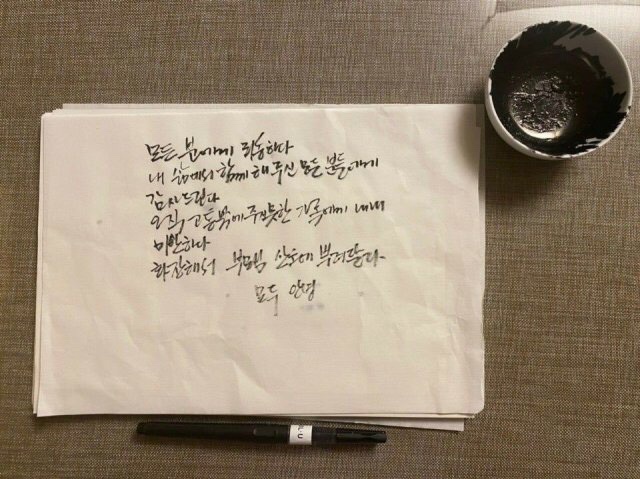 모든 분에게 죄송하다
내 삶에서 함께해주신 모든 분들에게
감사드린다
오직 고통밖에 주지못한 가족에게 내내
미안하다
화장해서 부모님 산소에 뿌려달라.
모두 안녕